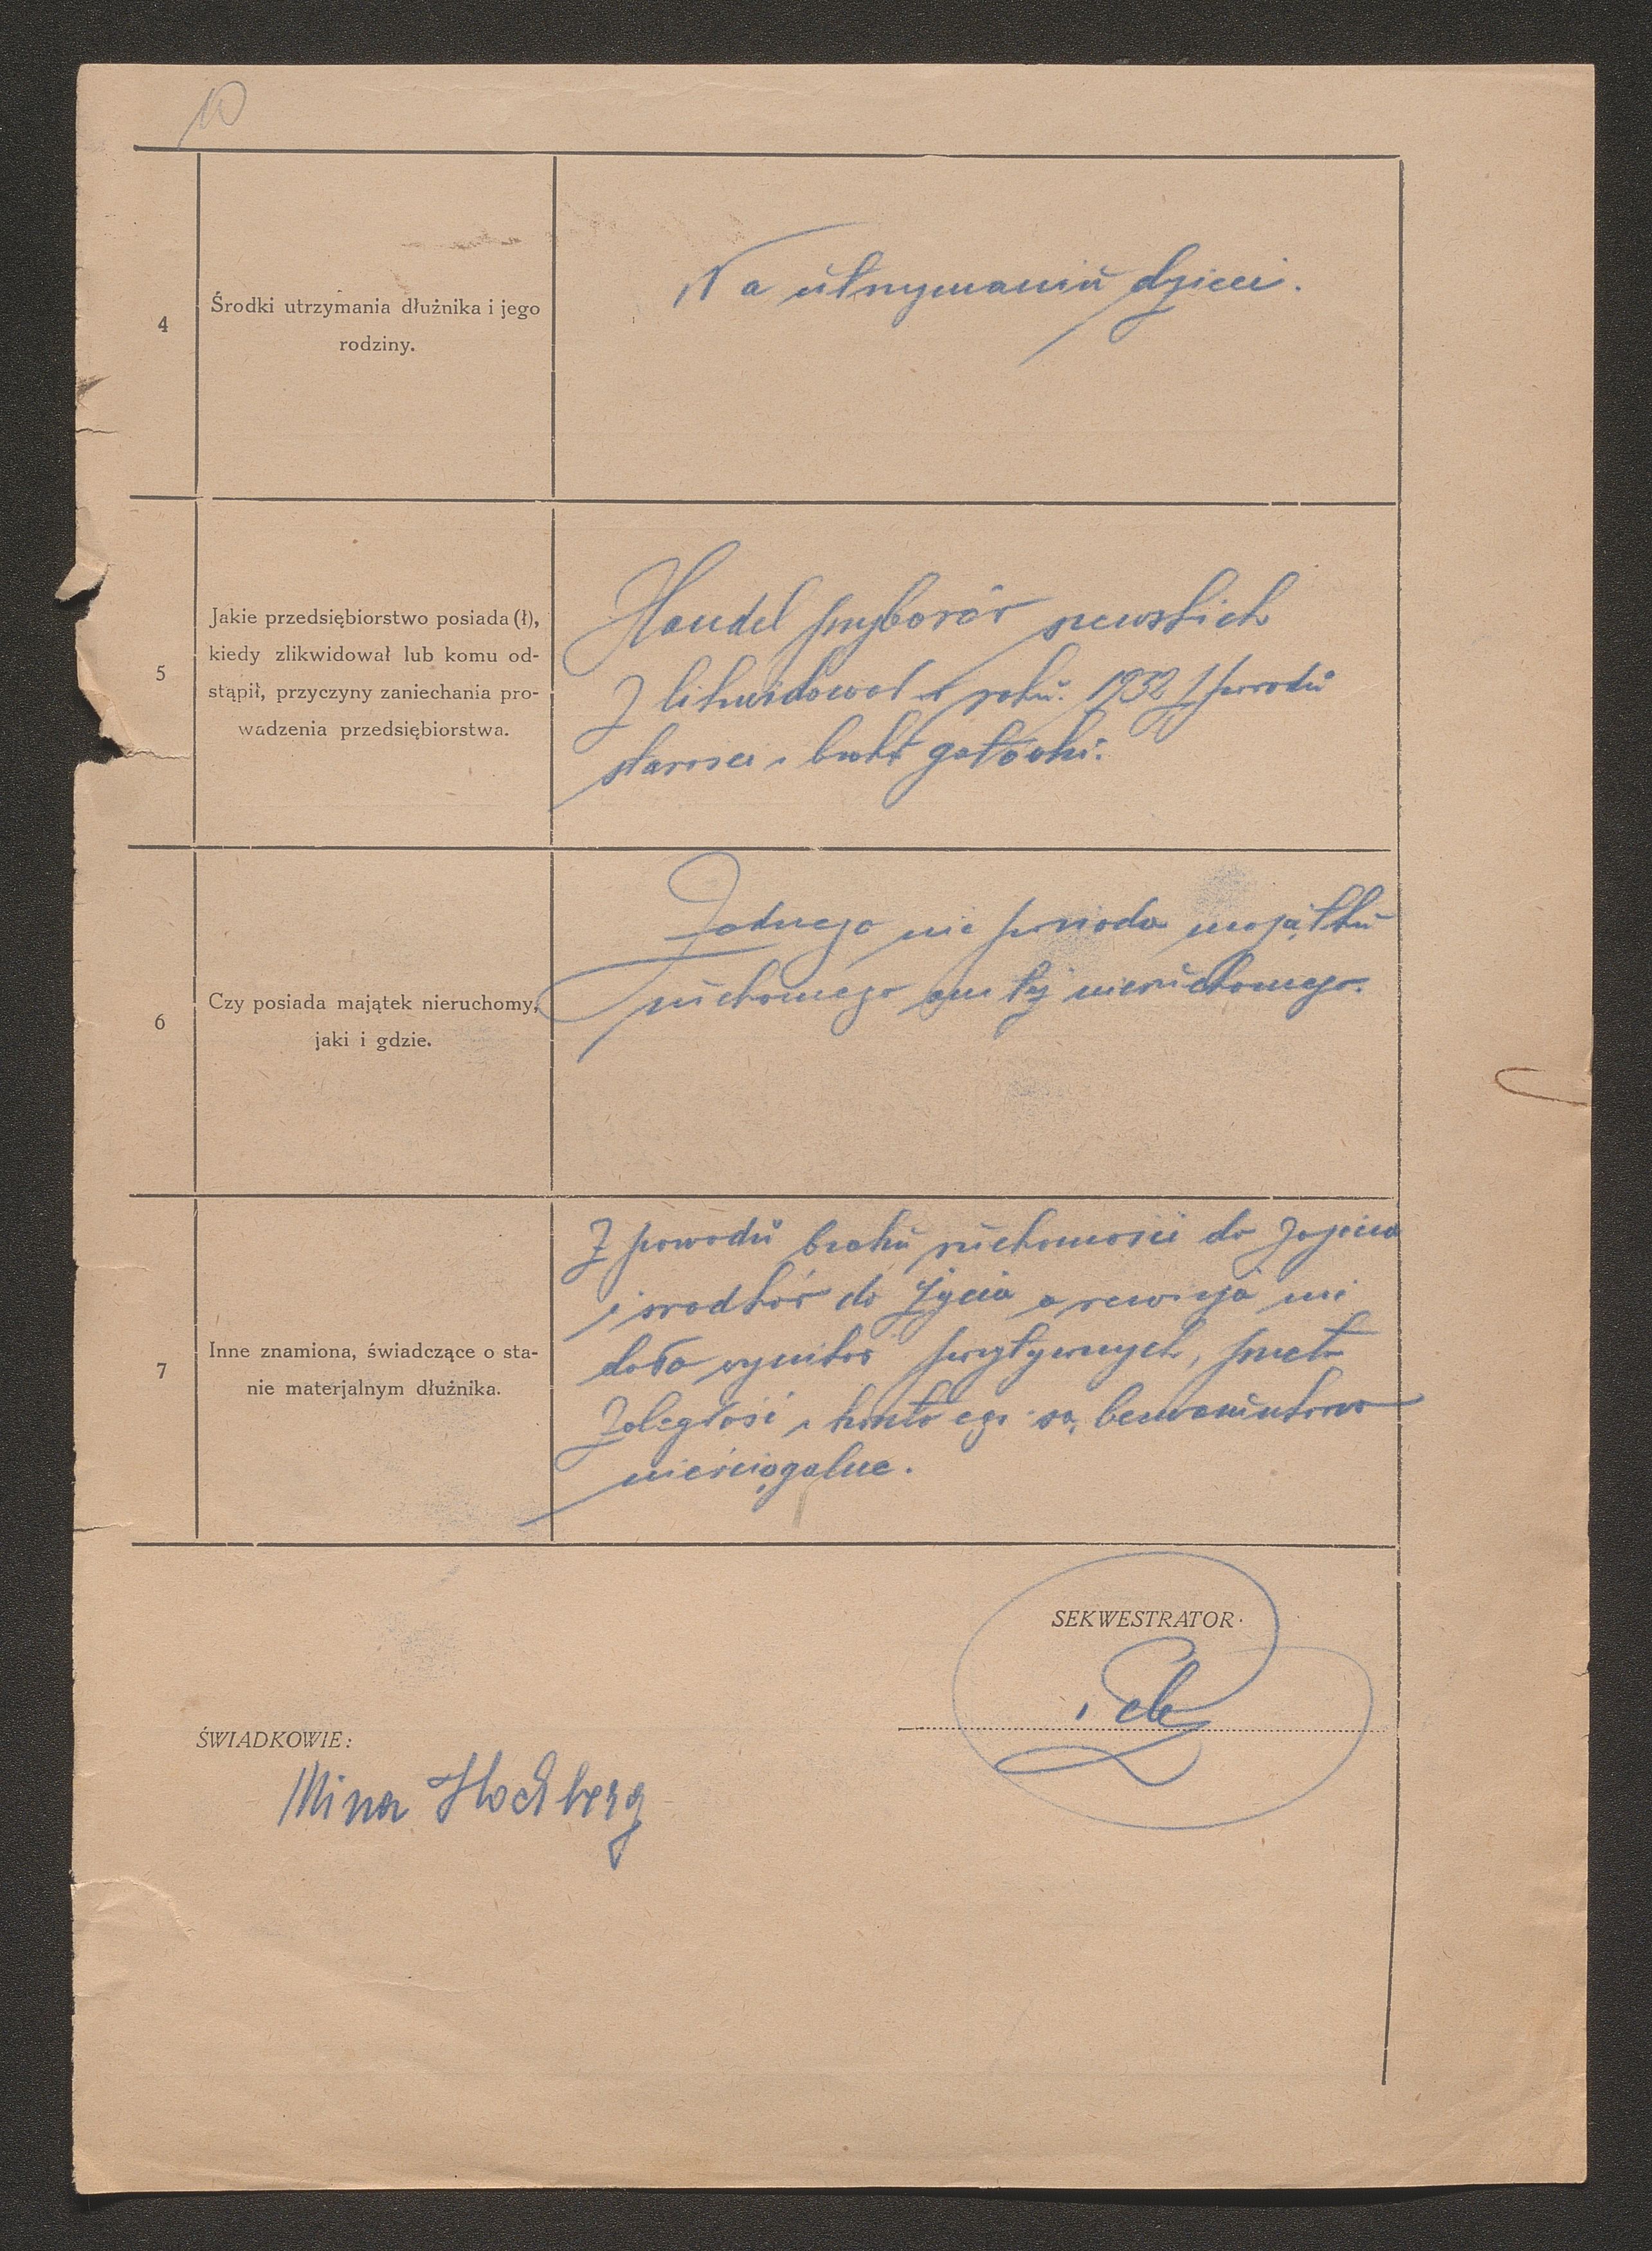 10
4
Środki utrzymania dłużnika i jego
rodziny.
Na utrzymaniu dzieci.
5
Jakie przedsiębiorstwo posiada (ł),
kiedy zlikwidował lub komu od-
stąpił, przyczyny zaniechania pro-
wadzenia przedsiębiorstwa.
Handel przyborów szewskich
Zlikwidował w roku 1932 z powodu
starosci i brak gotówki.
6
Czy posiada majątek nieruchomy,
jaki i gdzie.
Żadnego nie posiada majątku
ruchomego ani też nieruchomego.
7
Inne znamiona, świadczące o sta-
nie materjalnym dłużnika.
Z powodu braku ruchomosci do zajęcia
i srodków do życia a rewizja nie
dała wyników pozytywnych, przeto
Zaległosci i koszta egz. są bezwarunkowo
nieściągalne.
SEKWESTRATOR
ŚWIADKOWIE:
Mina Hochberg